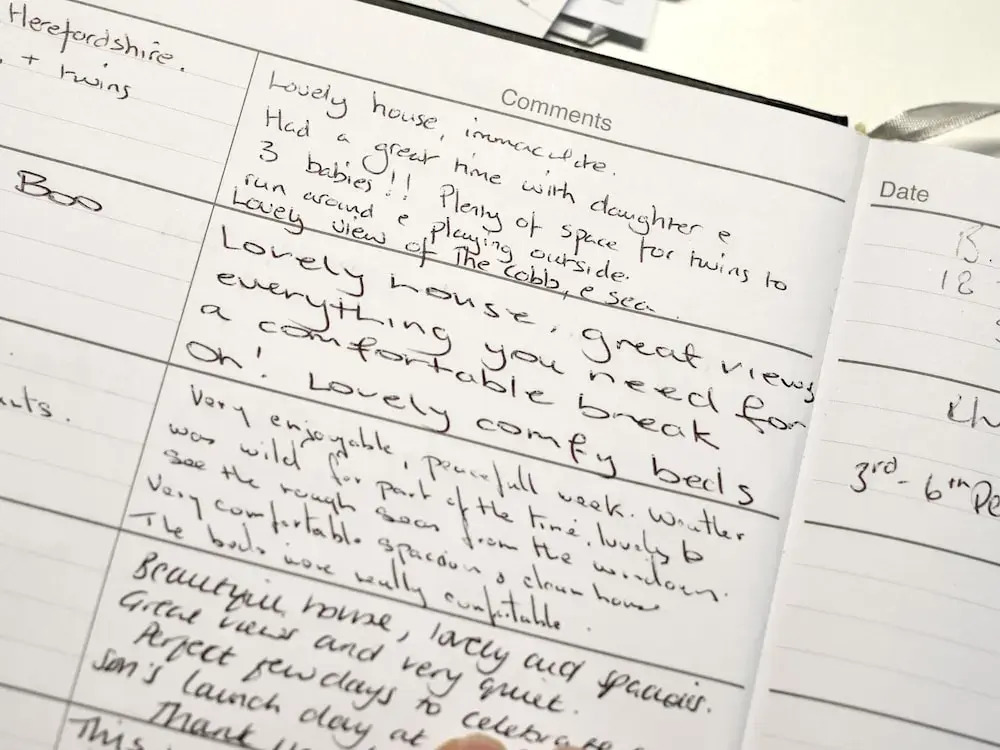 Herefordshire.
+ twins
Boo
Comments
Lovely house, immaculate.
Had a great time with daughter e
3 babies!! Plenty of space for twins to
run around e playing outside.
Lovely view of The Cobb, e sea.
Lovely house, great views
everything you need for
a comfortable break
Oh! Lovely comfy beds
Very enjoyable, peacefull week. Weather
was wild for part of the time. lovely to
see the rough seas from the windows.
Very comfortable spacious & clean house
The beds were really comfortable.
Beautiful house, lovely and spacious.
Great views and very quiet.
Perfect few days to celebrate
son's launch day at
Thank
This
Date
18
3rd - 6th De